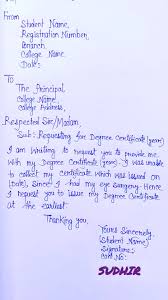 From
Student Name,
Registration Number,
Branch,
College Name.
Date:
To
The Principal
College Name,
College Address,
Respected Sir/Madam,
Sub: Requesting for Degree Certificate (year)
I am writing to request you to provide me
with my Degree Certificate (year). I was unable
to collect my certificate which was issued on
(Date), Since I had my eye surgery. Hence
I request you to issue my Degree Certificate
at the earliest.
Thanking you.
Yours Sincerely.
(Student Name)
Signature:
Cont No:
SUDHIR